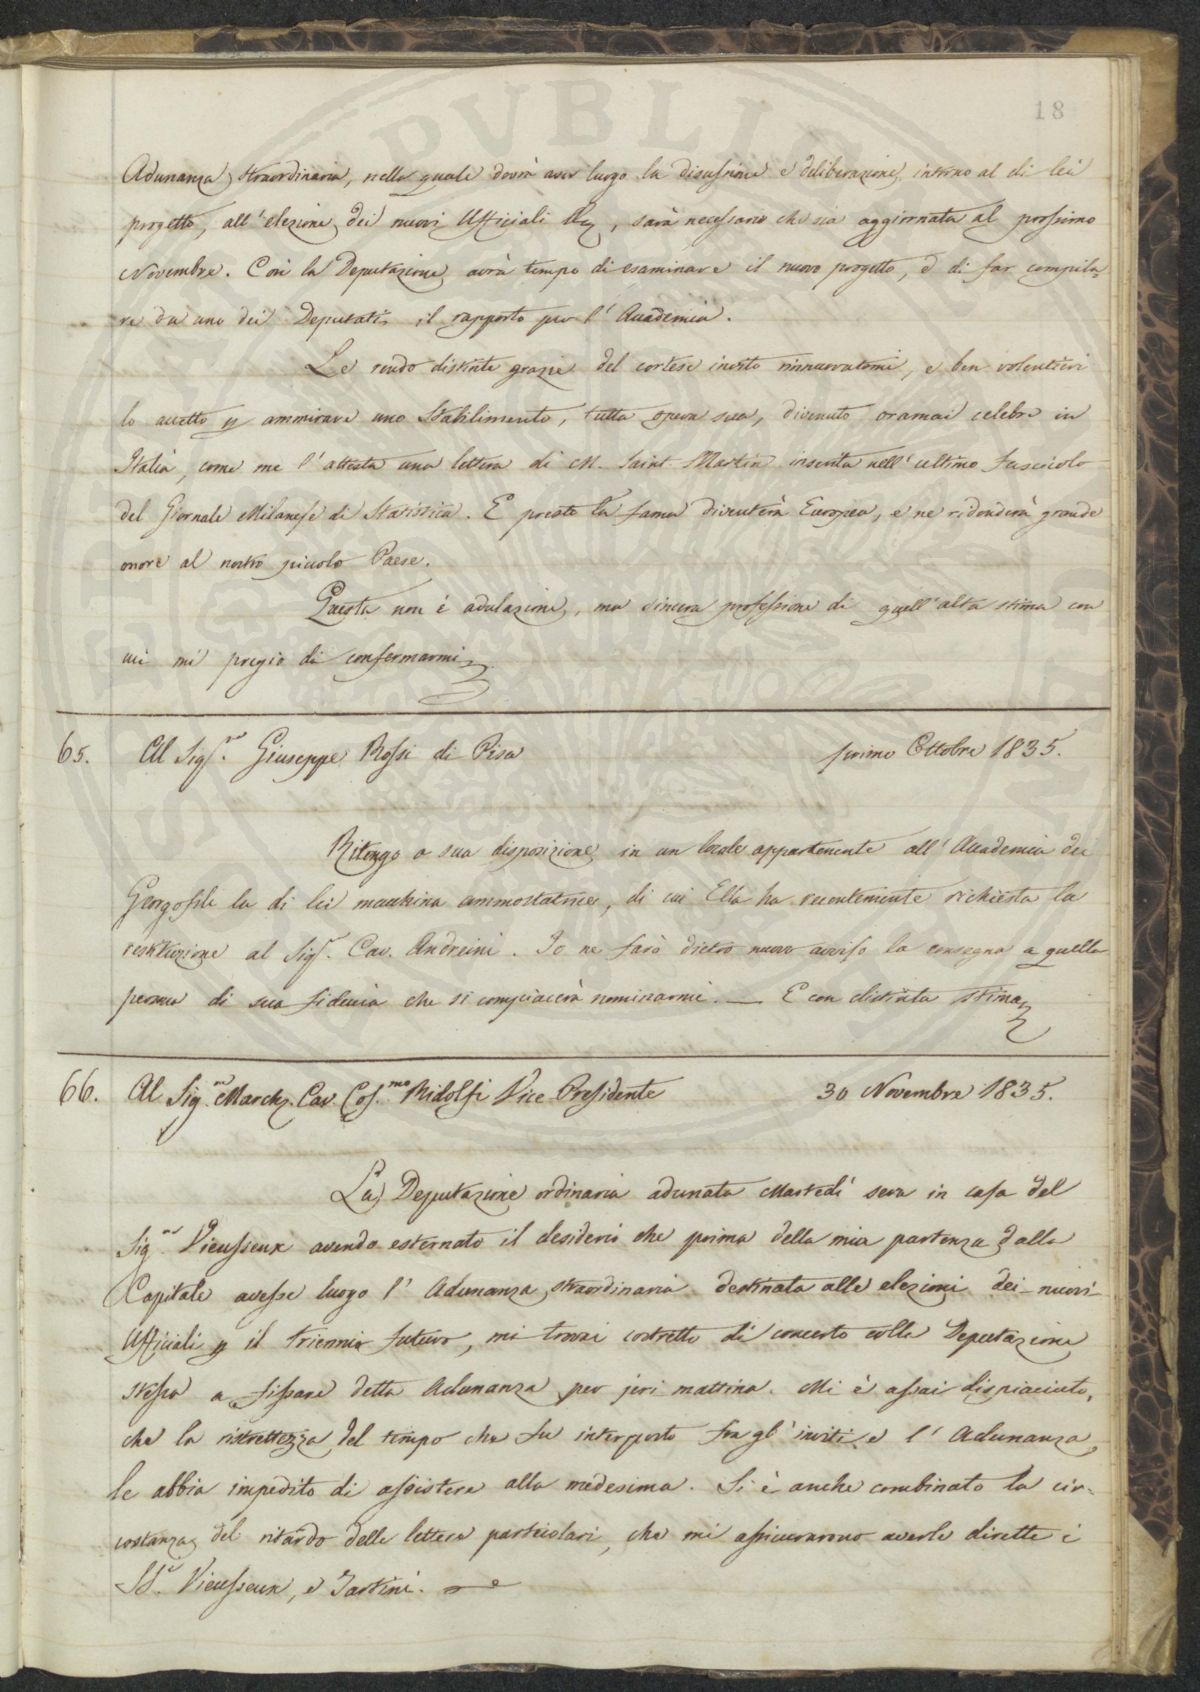 18
Adunanza straordinaria, nella quale dovrà aver luogo la discussione e deliberazione intorno al di lei
progetto, all'elezione dei nuovi Ufficiali &c, sarà necessario che sia aggiornata al prossimo
Novembre. Così la Deputazione avrà tempo di esaminare il nuovo progetto, e di far compila-
re da uno dei Deputati il rapporto per l'Accademia.
Le rendo distinte grazie del cortese invito rinnuovatomi, e ben volentieri
lo accetto p ammirare uno Stabilimento, tutta opera sua, divenuto oramai celebre in
Italia, come me l'attesta una lettera di M. Saint Martin inserita nell'ultimo fascicolo
del Giornale Milanese di Statistica. E presto la fama diventerà Europea, e ne ridonderà grande
onore al nostro piccolo Paese.
Questa non è adulazione, ma sincera professione di quell'alta stima con
cui mi pregio di confermarmi
65. Al Sigr. Giuseppe Rossi di Pisa primo Ottobre 1835.
Ritengo a sua disposizione in un locale appartenente all'Accademia dei
Georgofili la di lei macchina ammostatrice, di cui Ella ha recentemente richiesta la
restituzione al Sigr. Cav. Andreini. Io ne farò dietro nuovo avviso la consegna a quella
persona di sua fiducia che si compiacerà nominarmi. — E con distinta stima
66. Al Sigr. March. Cav. Cosmo Ridolfi Vice Presidente 30 Novembre 1835.
La Deputazione ordinaria adunata Martedì sera in casa del
Sigr. Vieusseux avendo esternato il desiderio che prima della mia partenza dalla
Capitale avesse luogo l'Adunanza straordinaria destinata alle elezioni dei nuovi
Ufficiali p il triennio futuro, mi trovai costretto di concerto colla Deputazione
stessa a fissare detta Adunanza per jeri mattina. Mi è assai dispiaciuto,
che la ristrettezza del tempo che fu interposto fra gl'inviti e l'Adunanza,
le abbia impedito di assistere alla medesima. Si è anche combinato la cir-
costanza del ritardo delle lettere particolari, che mi assicurarono averle dirette i
SSri. Vieusseux, e Tartini.